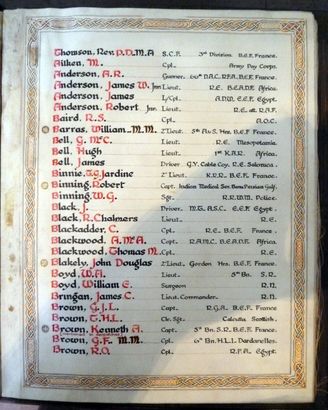 Thomson, Rev. P.D. M.A S.C.F. 3rd Division B.E.F. France.
Aitken, M. Cpl. Army Pay Corps.
Anderson, A.R. Gunner. 60th D.A.C. R.F.A. B.E.F. France.
Anderson, James W. Jnr Lieut. R.E. B.E.A.D.E. Africa.
Anderson, James L/Cpl. E.E.F. Egypt.
Anderson, Robert Jnr. Lieut. R.E. att R.A.F.
Baird, R.S. Cpl. A.O.C.
Barras, William M.M. 2nd Lieut. 5th A&S Hrs. B.E.F. France.
Bell, G. McC. Lieut. R.E. Mesopotamia.
Bell, Hugh Lieut. 1st K.A.R. Africa.
Bell, James Driver. G.Y. Cable Coy, R.E. Salonica.
Binnie, T.G. Jardine 2nd Lieut. K.R.R. B.E.F. France.
Binning, Robert Capt. Indian Medical Ser. Persian Gulf.
Binning, W.G. Sgt. Police.
Black, J. Driver. M.T. A.S.C. E.E.F. Egypt.
Black, R. Chalmers Lieut. R.E.
Blackadder, C. Cpl. R.E. B.E.F. France.
Blackwood, A. McA. Capt. R.A.M.C. B.E.A.D.E. Africa.
Blackwood, Thomas M. Cpl. R.E.
Blakely, John Douglas 2nd Lieut. Gordon Hrs. B.E.F. France.
Boyd, W.A. Lieut. 5th Bn. S.R.
Boyd, William E. Surgeon R.N.
Bringan, James C. Lieut. Commander. R.N.
Brown, G.J.L. Capt. R.G.A. B.E.F. France.
Brown, T.H.L. Clr. Sgt. Calcutta Scottish.
Brown, Kenneth A. Capt. 5th Bn. S.R. B.E.F. France.
Brown, G.F. M.M. Cpl. 6th Bn. H.L.I. Dardanelles.
Brown, R.O. Cpl. R.F.A. Egypt.